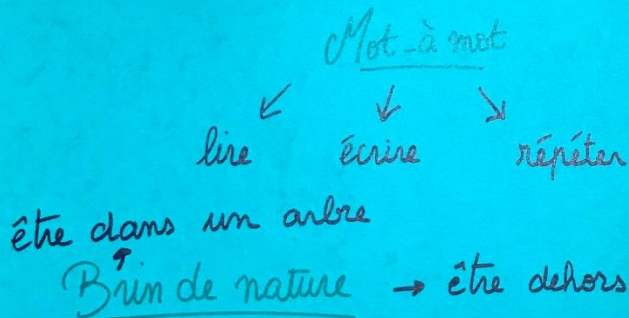 Mot-à mot
↙ ↓ ↘
lire écrire répéter
être dans un arbre
↑
Brin de nature → être dehors